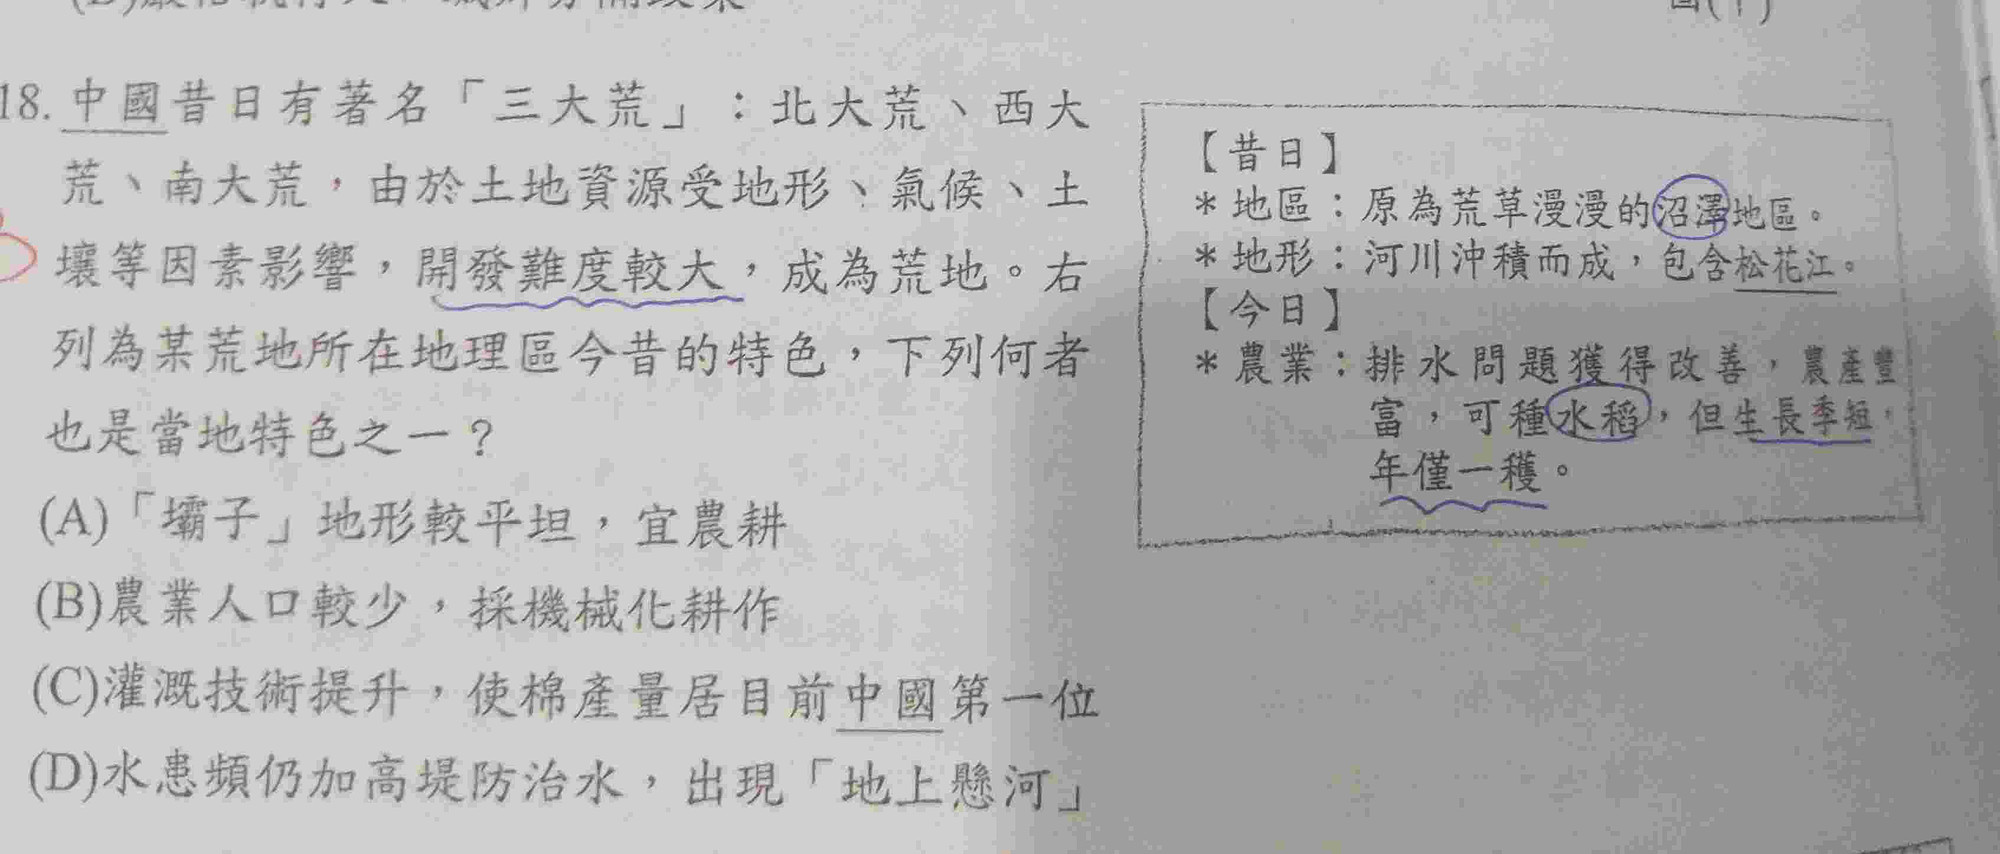 18. 中國昔日有著名「三大荒」：北大荒、西大
荒、南大荒，由於土地資源受地形、氣候、土
壤等因素影響，開發難度較大，成為荒地。右
列為某荒地所在地理區今昔的特色，下列何者
也是當地特色之一？
(A)「壩子」地形較平坦，宜農耕
(B)農業人口較少，採機械化耕作
(C)灌溉技術提升，使棉產量居目前中國第一位
(D)水患頻仍加高堤防治水，出現「地上懸河」
【昔日】
＊地區：原為荒草漫漫的沼澤地區。
＊地形：河川沖積而成，包含松花江。
【今日】
＊農業：排水問題獲得改善，農產豐
富，可種水稻，但生長季短，
年僅一穫。